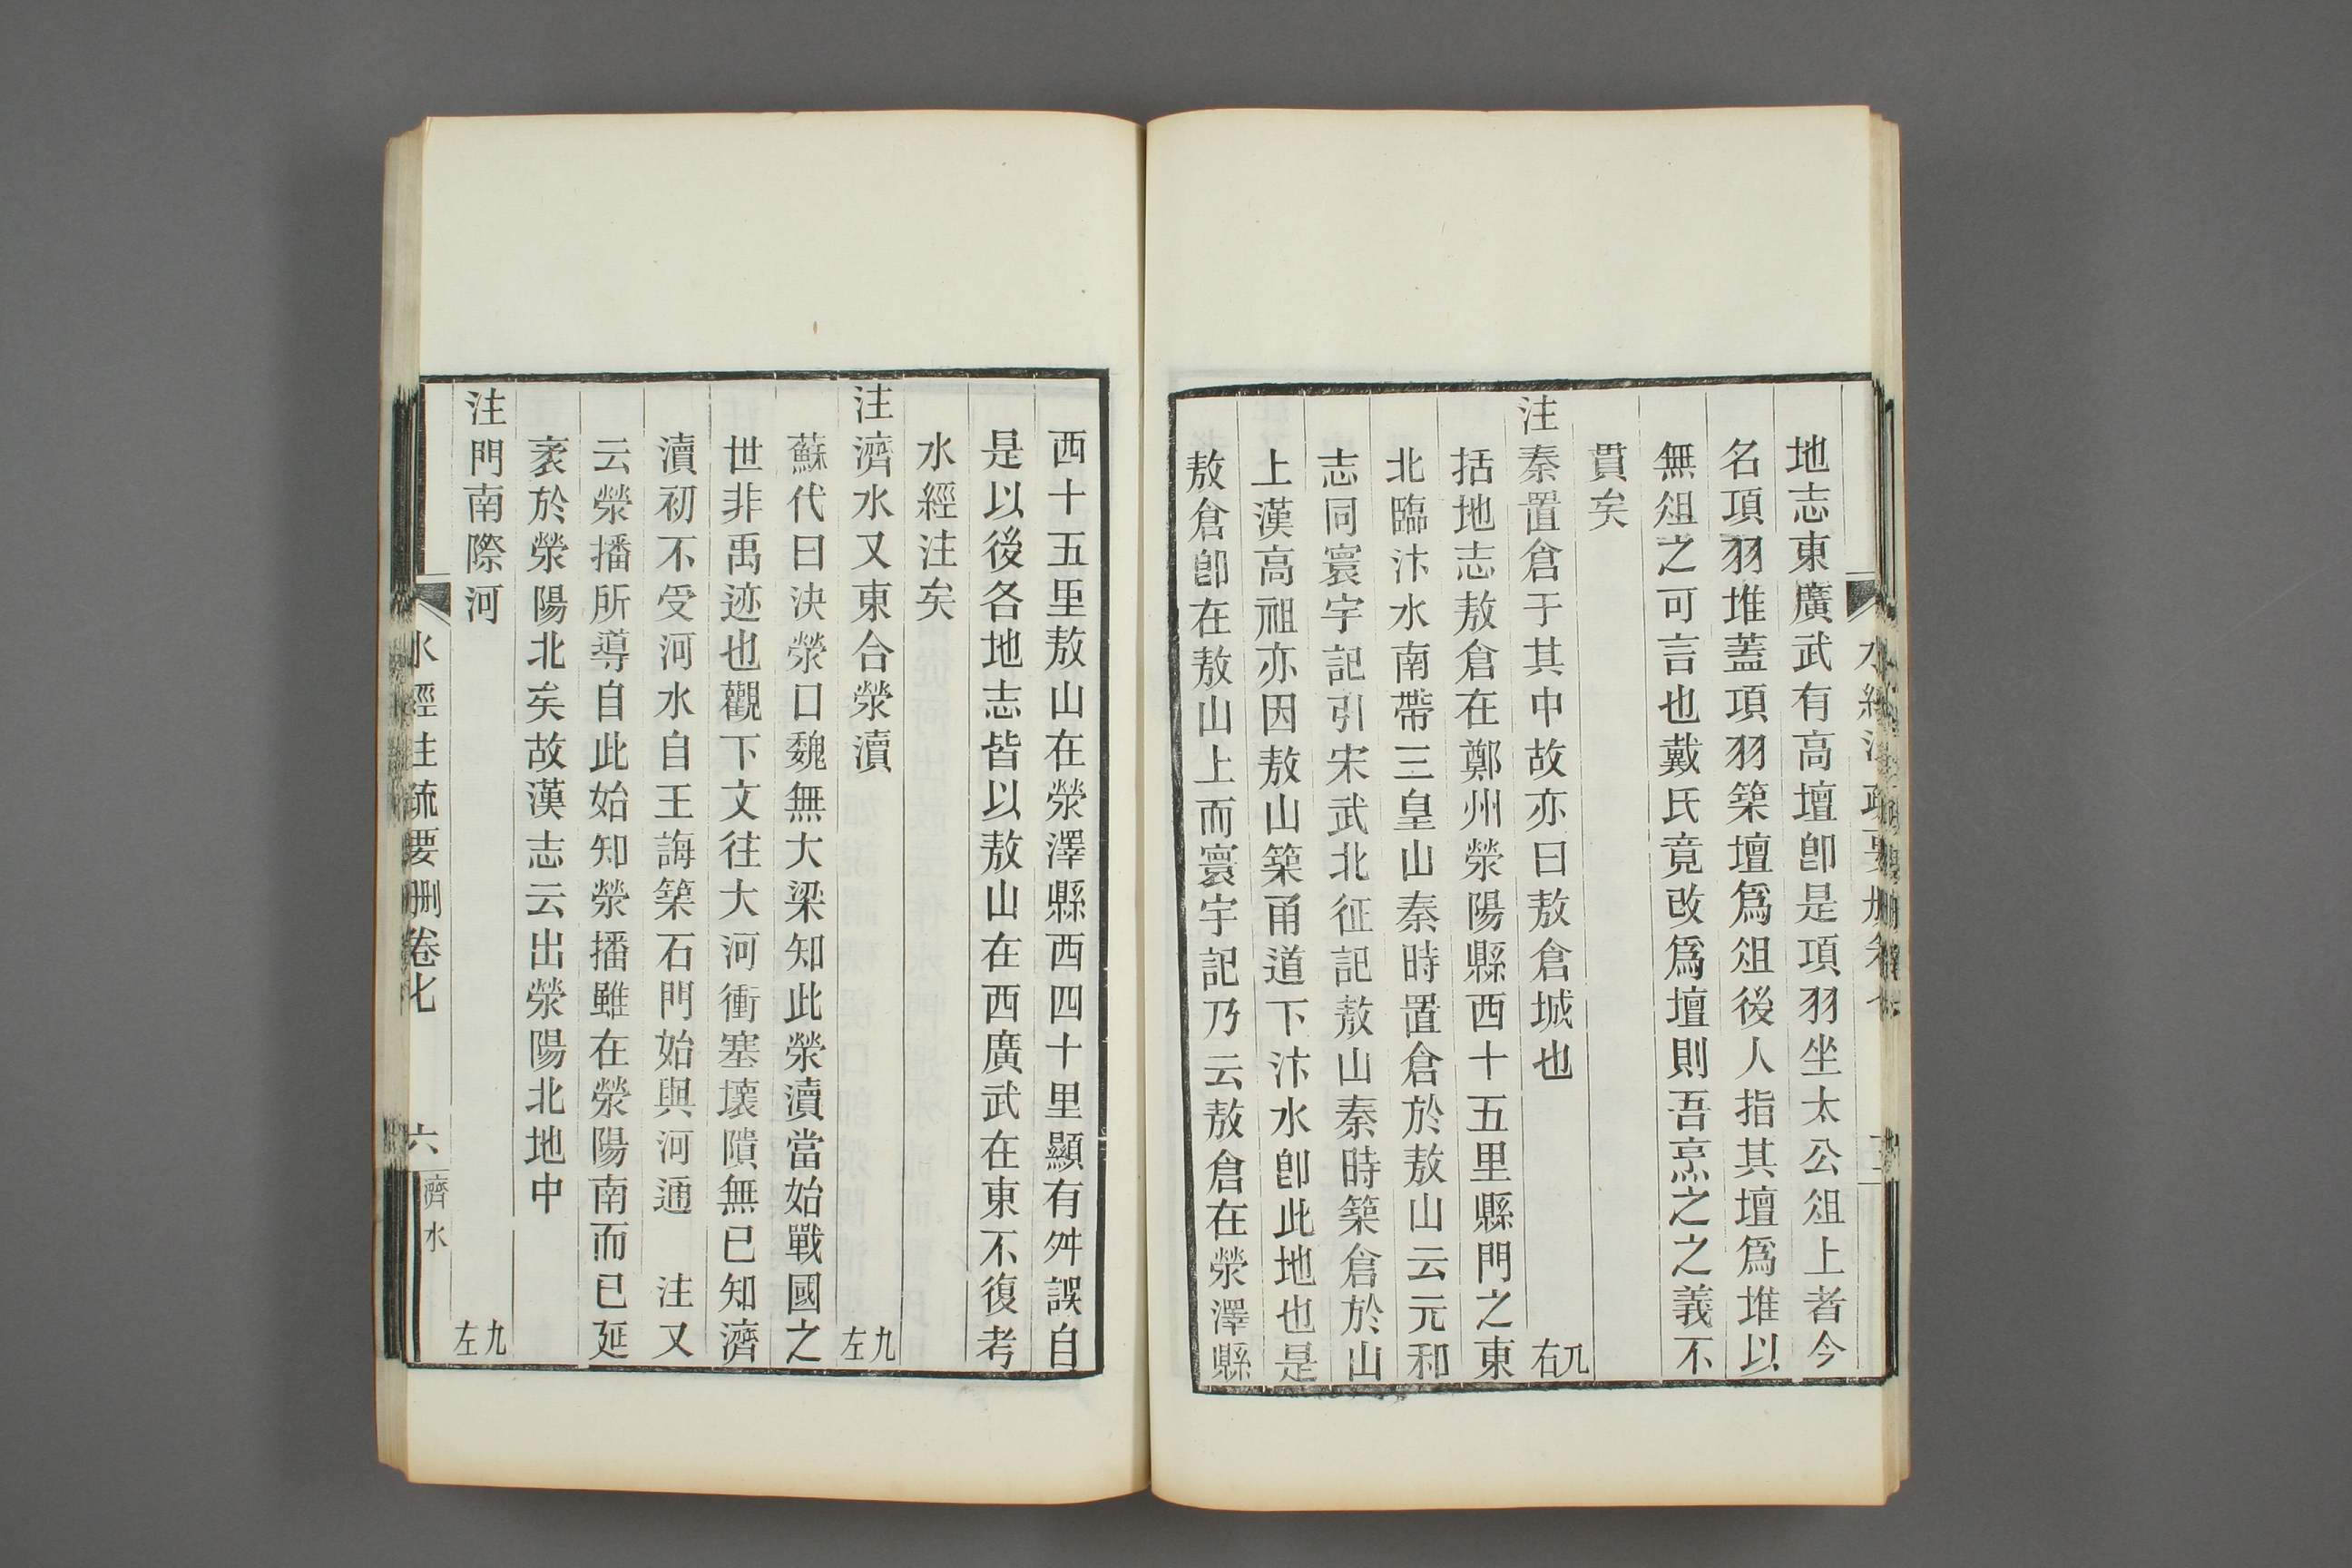 地志東廣武有高壇卽是項羽坐太公俎上者今
名項羽堆蓋項羽築壇爲俎後人指其壇爲堆以
無俎之可言也戴氏竟改爲壇則吾烹之之義不
貫矣
注秦置倉于其中故亦曰敖倉城也 九右
括地志敖倉在鄭州滎陽縣西十五里縣門之東
北臨汴水南帶三皇山秦時置倉於敖山云元和
志同寰宇記引宋武北征記敖山秦時築倉於山
上漢高祖亦因敖山築甬道下汴水卽此地也是
敖倉卽在敖山上而寰宇記乃云敖倉在滎澤縣
西十五里敖山在滎澤縣西四十里顯有舛誤自
是以後各地志皆以敖山在西廣武在東不復考
水經注矣
注濟水又東合滎瀆 九左
蘇代曰決滎口魏無大梁知此滎瀆當始戰國之
世非禹迹也觀下文往大河衝塞壞隤無已知濟
瀆初不受河水自王誨築石門始與河通 注又
云滎播所導自此始知滎播雖在滎陽南而已延
袤於滎陽北矣故漢志云出滎陽北地中
注門南際河 九左
水經注疏要删卷七 六 濟水